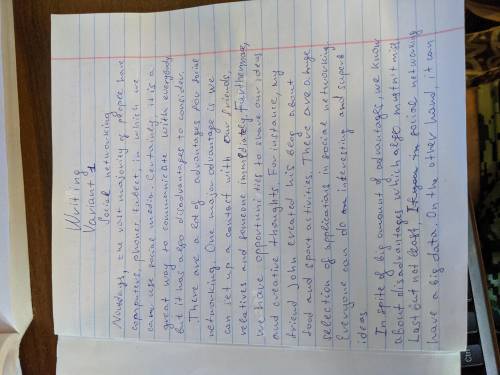 Writing
Variant 1
Social networking
Nowdays, the vast majority of people have
computers, phones, tablet in which we
can use social media. Certainly, it is a
great way to communicate with everybody,
but it has also disadvantages to consider.
There are lot of advantages for social
networking. One major advantage is we
can set up a contact with our friends,
relatives and someone immediately. Furthermore,
we have opportunities to share our ideas
and creative thoughts. For instance, my
friend John created his blog about
food and sport activities. There are a huge
selection of applications in social networking.
Everyone can do an interesting and superb
ideas
In spite of big amount of advantages, we know
about disadvantages which also mustn't miss.
Last but not least, in social networking
have a big data. On the other hand, it can